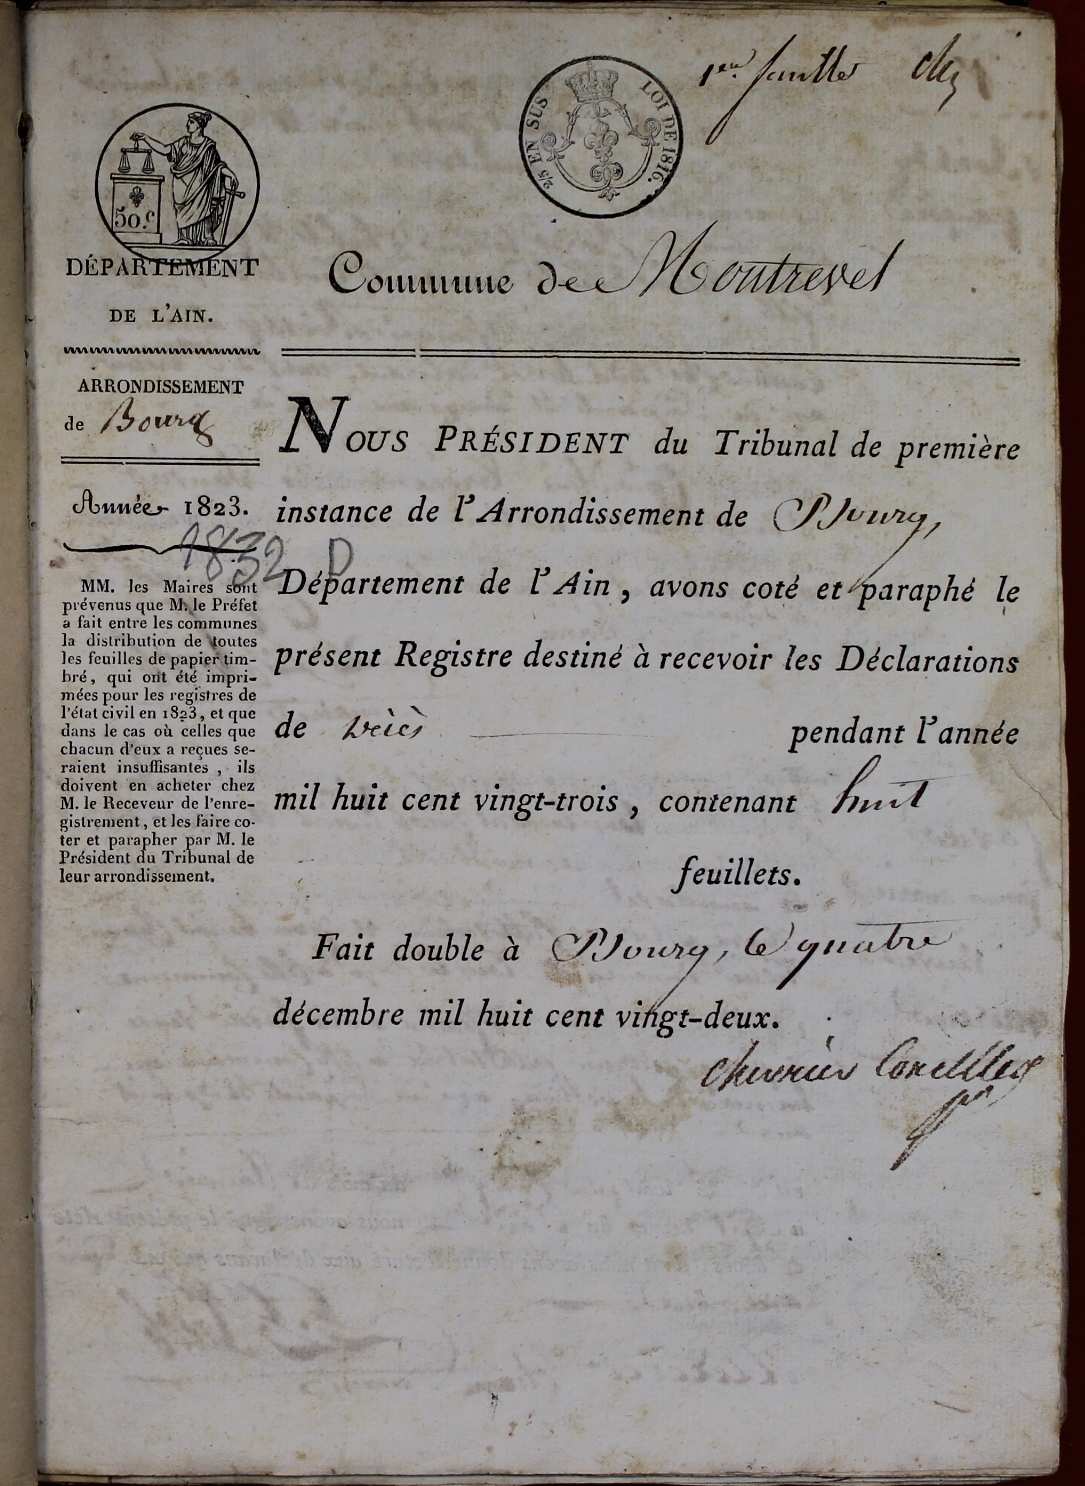 1er feuillet
2/5 EN SUS LOI DE 1816.
50.c
DÉPARTEMENT
DE L'AIN.
Commune de Montrevel
ARRONDISSEMENT
de Bourg
Année 1823.
1832 D
MM. les Maires sont
prévenus que M. le Préfet
a fait entre les communes
la distribution de toutes
les feuilles de papier tim-
bré, qui ont été impri-
mées pour les registres de
l'état civil en 1823, et que
dans le cas où celles que
chacun d'eux a reçues se-
raient insuffisantes, ils
doivent en acheter chez
M. le Receveur de l'enre-
gistrement, et les faire co-
ter et parapher par M. le
Président du Tribunal de
leur arrondissement.
NOUS PRÉSIDENT du Tribunal de première
instance de l'Arrondissement de Bourg,
Département de l'Ain, avons coté et paraphé le
présent Registre destiné à recevoir les Déclarations
de décès pendant l'année
mil huit cent vingt-trois, contenant huit
feuillets.
Fait double à Bourg, le quatre
décembre mil huit cent vingt-deux.
Chevrier Corcelles